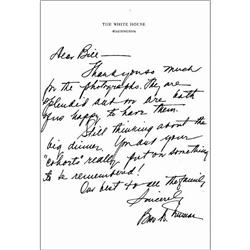 THE WHITE HOUSE
WASHINGTON
Dear Bill —
Thank you so much
for the photographs. They are
splendid and we are both
happy to have them.
Still thinking about the
big dinner. You and your
"cohorts" really put on something
to be remembered!
Our best to all the family
Sincerely
Truman